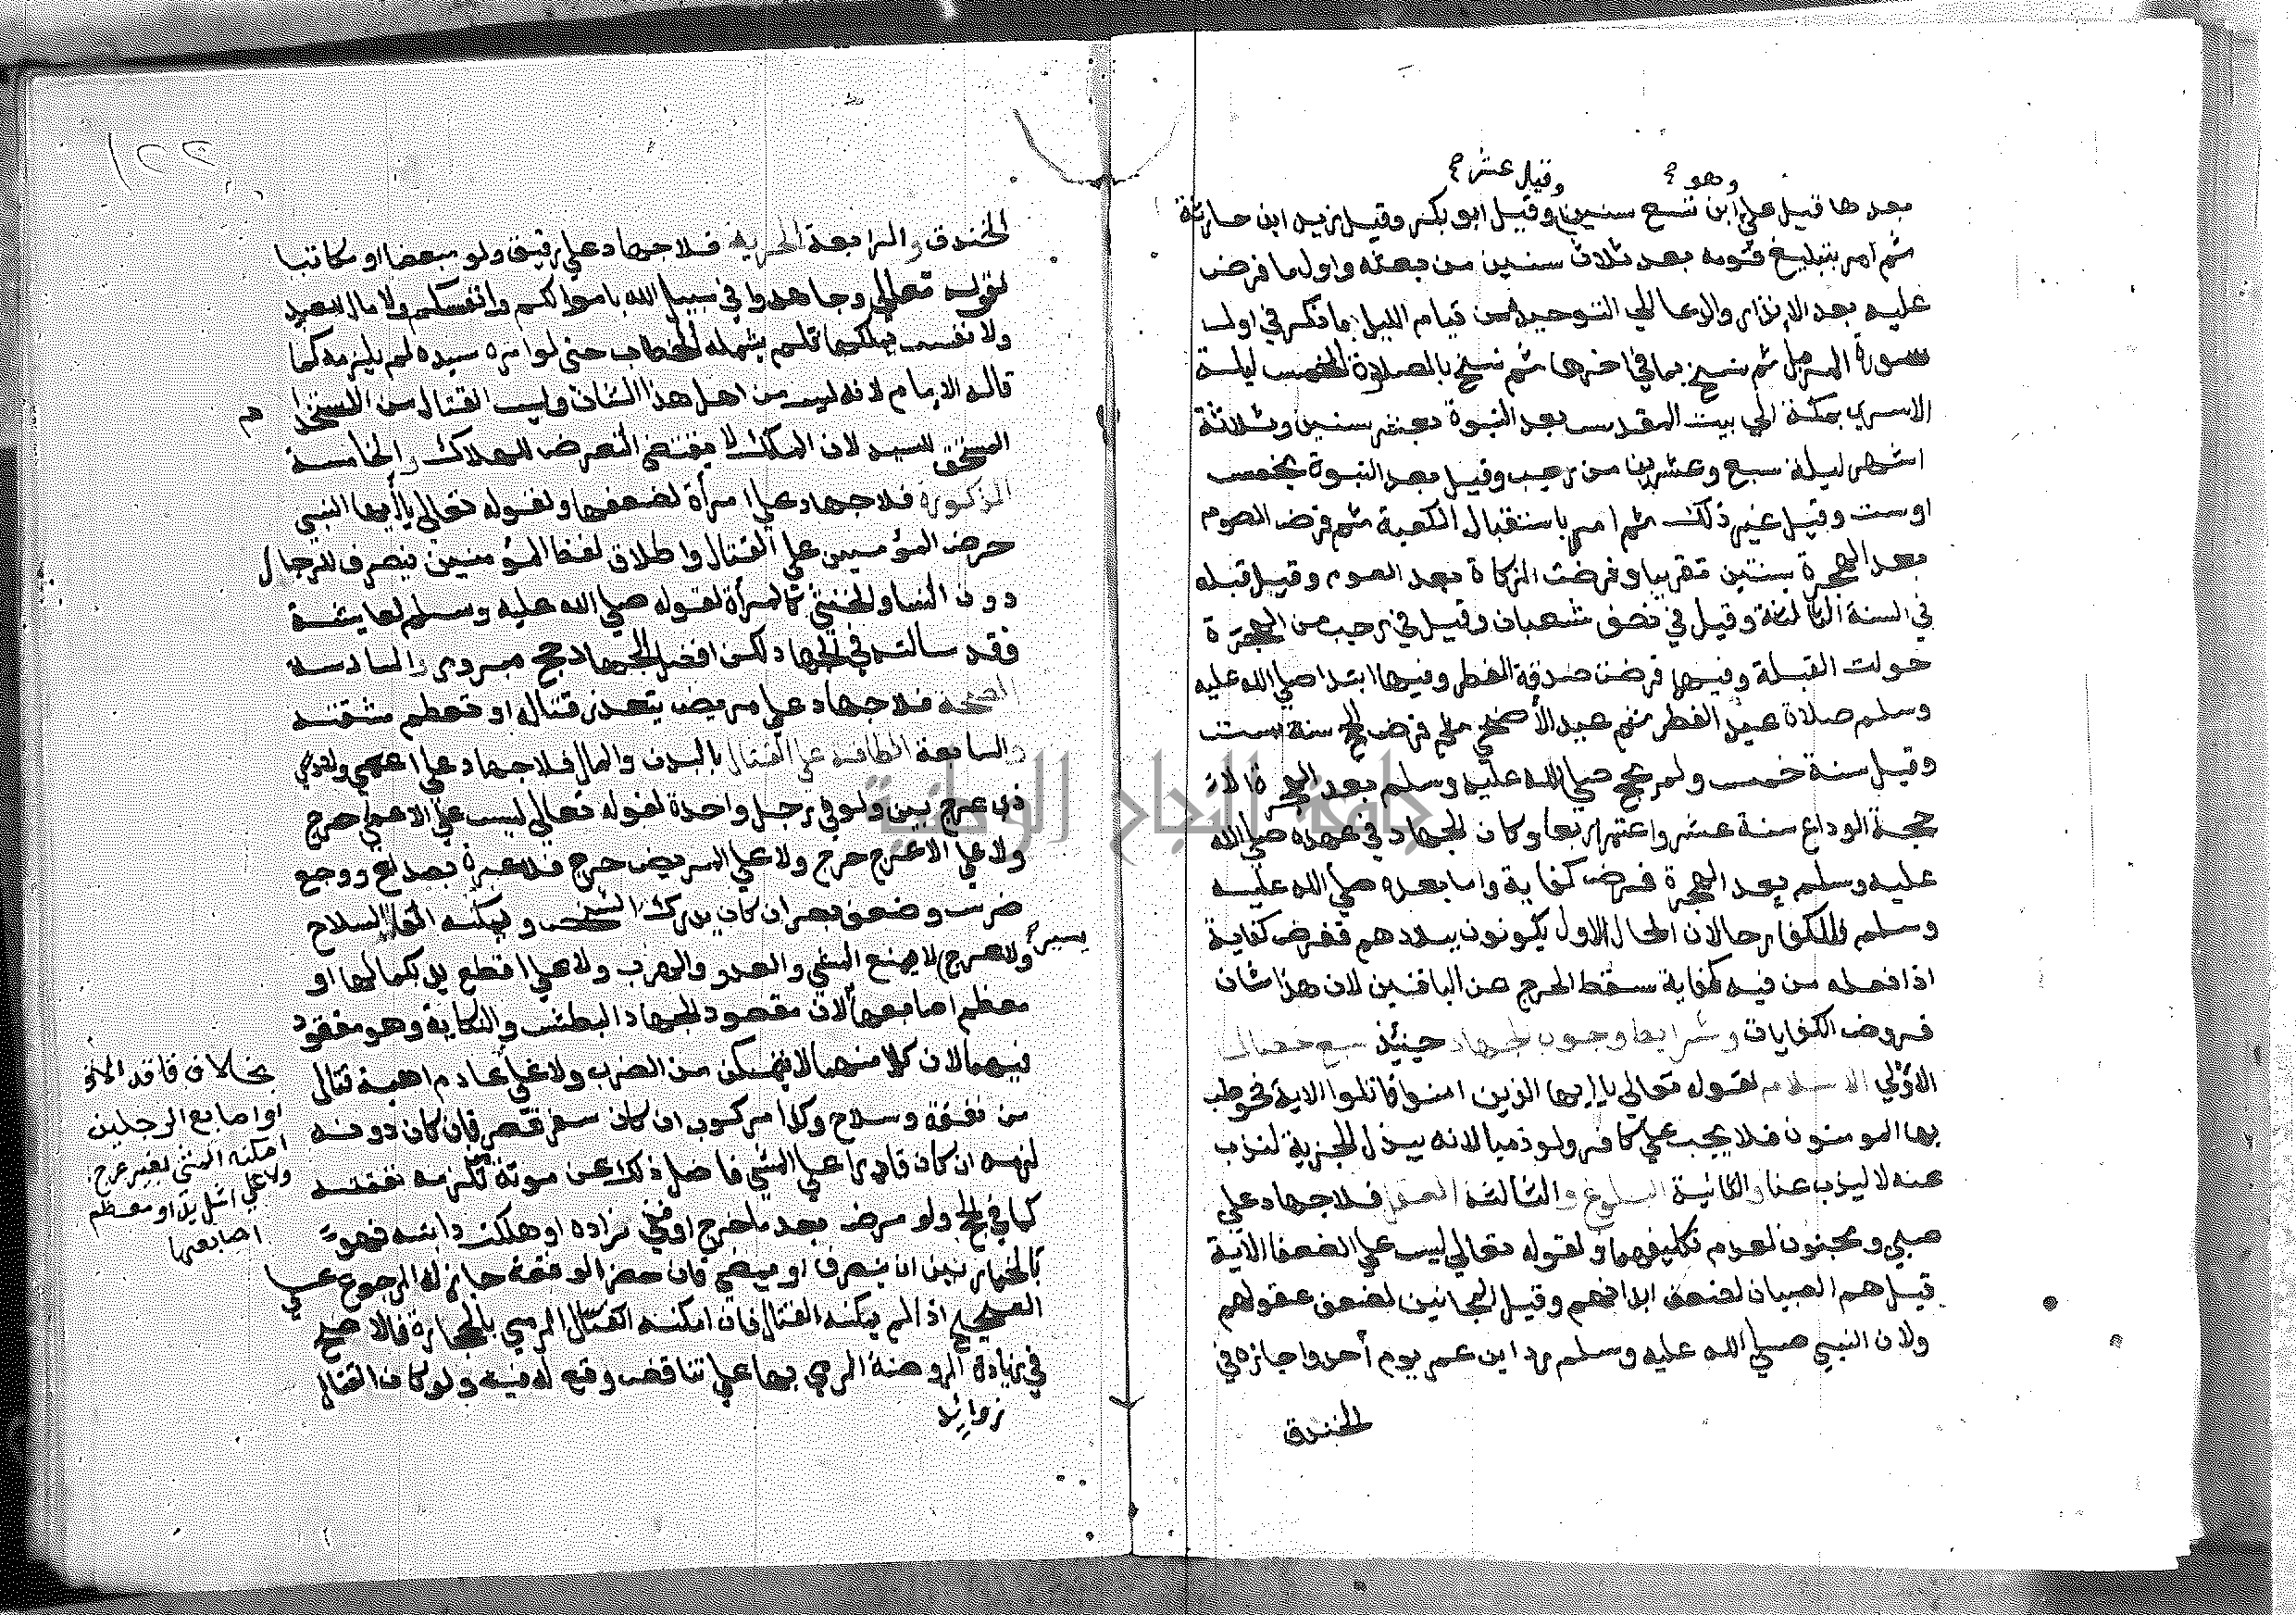 وهو صح
وقيل عشر صح
بعدها قيل علي ابن تسع سنين وقيل ابو بكر وقيل زيد ابن حارثة
ثم امر بتبليغ قومه بعد ثلاث سنين من بعثه واول ما فرض
عليه بعد الانذار والدعا الي التوحيد من قيام الليل ما ذكر في اول
سورة المزمل ثم نسخ بما في اخرها ثم نسخ بالصلاة الخمس ليلة
الاسري بمكة الي بيت المقدس بعد النبوة بعشر سنين وثلاثة
اشهر ليلة سبع وعشرين من رجب وقيل بعد النبوة بخمس
اوست وقيل غير ذلك ثم امر باستقبال الكعبة ثم فرض الصوم
بعد الهجرة بسنتين تقريبا وفرضت الزكاة بعد الصوم وقيل قبله
في السنة الثانية وقيل في نصف شعبان وقيل في رجب من الهجرة
حولت القبلة وفيها فرضت صدقة الفطر وفيها ابتدا صلي الله عليه
وسلم صلاة عيد الفطر ثم عيد الأضحي ثم فرض الحج سنة ست
وقيل سنة خمس ولم يحج صلي الله عليه وسلم بعد الهجرة الا
حجة الوداع سنة عشر واعتمر اربعا وكان الجهاد في عهده صلي الله
عليه وسلم بعد الهجرة فرض كفاية واما بعده صلي الله عليه
وسلم فللكفار حالان الحال الاول يكونون ببلادهم ففرض كفاية
اذا فعله من فيه كفاية سقط الحرج عن الباقين لان هذا شان
فروض الكفايات وشرايط وجوب الجهاد حينئذ سبع خصال
الاولي الاسلام لقوله تعالي يا ايها الذين امنوا قاتلوا الاية فخوطب
بها المومنون فلا يجب علي كافر ولو ذميا لانه يبذل الجزية لنذب
عنه لا ليذب عنا والثانية البلوغ والثالثة العقل فلا جهاد علي
صبي ومجنون لعدم تكليفهما ولقوله تعالي ليس علي الضعفا الآية
قيل هم الصبيان لضعف ابدانهم وقيل المجانين لضعف عقولهم
ولان النبي صلي الله عليه وسلم رد ابن عمر يوم أحد واجازه في
الخندق
١٢٢
الخندق والرابعة الحرية فلا جهاد علي رقيق ولو مبعضا او مكاتبا
لقوله تعالي وجاهدوا في سبيل الله باموالكم وانفسكم ولا مال للعبد
ولا نفس يملكها فلم يشمله الخطاب حتي لوامره سيده لم يلزمه كما
قاله الامام لانه ليس من اهل هذا الشان وليس القتال من الاستخدام
المستحق للسيد لان الملك لا يقتضي التعرض للهلاك والخامسة
الذكورة فلا جهاد علي امرأة لضعفها ولقوله تعالي يا أيها النبي
حرض المؤمنين علي القتال واطلاق لفظ المؤمنين ينصرف للرجال
دون النسا والخنثي كالمرأة لقوله صلي الله عليه وسلم لعايشة
فقد سالته في الجهاد لكن افضل الجهاد حج مبرور والسادسة
الصحة فلا جهاد علي مريض يتعذر قتاله او تعظم مشقته
والسابعة الطاقة علي القتال بالبدن والمال فلا جهاد علي اعمي ولا علي
ذي عرج بين ولو في رجل واحدة لقوله تعالي ليس علي الاعمي حرج
ولا علي الاعرج حرج ولا علي المريض حرج فلا عبرة بصداع ووجع
ضرس وضعف بصر ان كان يدرك الشخص ويمكنه اتقا السلاح
ولا عرج يسير لا يمنع المشي والعدو والهرب ولا علي اقطع يد بكمالها او
معظم اصابعها لان مقصود الجهاد البطش والنكاية وهو مفقود
فيهما لان كلا منهما لا يتمكن من الضرب ولا علي عادم اهبة قتال
من نفقة وسلاح وكذا مركوب ان كان سفر قصر فان كان دونه
لزمه ان كان قادرا علي المشي فاضل ذلك عن مونة من تلزمه نفقته
كما في الحج ولو مرض بعد ما خرج او فني زاده او هلكت دابته فهو
بالخيار بين ان ينصرف او يمضي فان حضر الوقعة جاز له الرجوع علي
الصحيح اذا لم يمكنه القتال فان امكنه القتال الرمي بالحجارة فالاصح
في زيادة الروضة الرمي بها علي تناقض وقع له فيه ولو كان القتال
زوايد
بخلاف فاقد الابهام
او اصابع الرجلين
امكنه المشي بغير عرج
ولا علي اشل يد او معظم
اصابعها
جامعة النجاح الوطنية